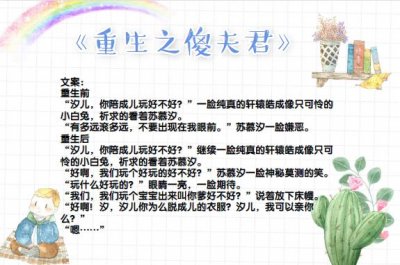 《重生之傻夫君》
文案：
重生前
“汐儿，你陪成儿玩好不好？”一脸纯真的轩辕皓成像只可怜的
小白兔，祈求的看着苏慕汐。
“有多远滚多远，不要出现在我眼前。”苏慕汐一脸嫌恶。
重生后
“汐儿，你陪成儿玩好不好？”继续一脸纯真的轩辕皓成像只可
怜的小白兔，祈求的看着苏慕汐。
“好啊，我们玩个好玩的好不好？”苏慕汐一脸神秘莫测的笑。
“玩什么好玩的？”眼睛一亮，一脸期待。
“我们，我们玩个宝宝出来叫你爹好不好？”说着放下床幔。
“好啊！汐，汐儿你为么脱成儿的衣服？汐儿，我可以亲你
么？”
“嗯……”